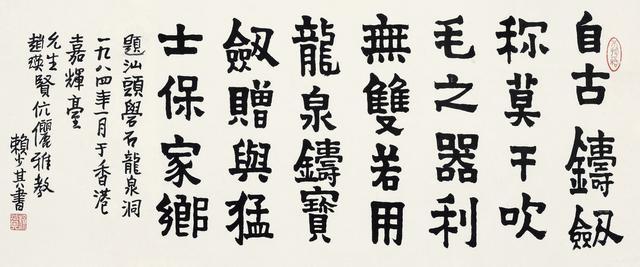 自古鑄劔
称莫干吹
毛之器利
無雙若用
龍泉鑄寶
劔贈與猛
士保家鄉
題汕頭礐石龍泉洞
一九八四年一月于香港
嘉輝臺
允生趙瑛賢伉儷雅教
賴少其書